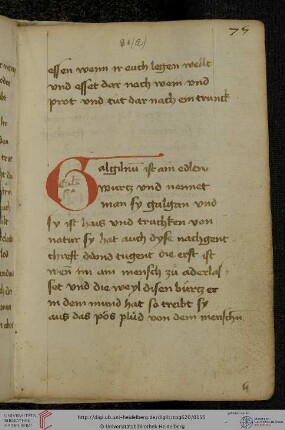 75
81/2)
essen wenn ir euch legen welt
und esset dar nach wein und
prot und tut dar nach ein trunck
Galgānū ist ain edlew
wurtz und nennet
man sy galgan und
sy ist hais und truchken von
natur sy hat auch dyse nachgent
tugent die erst ist
wen im ain mensch zu aderlas
set und die weyl disen wurtz er
in dem mund hat so treibt sy
aus das pös plüd von dem menschn
UNIVERSITÄTS-
BIBLIOTHEK
HEIDELBERG
http://digi.ub.uni-heidelberg.de/diglit/cpg620/0155
© Universitätsbibliothek Heidelberg